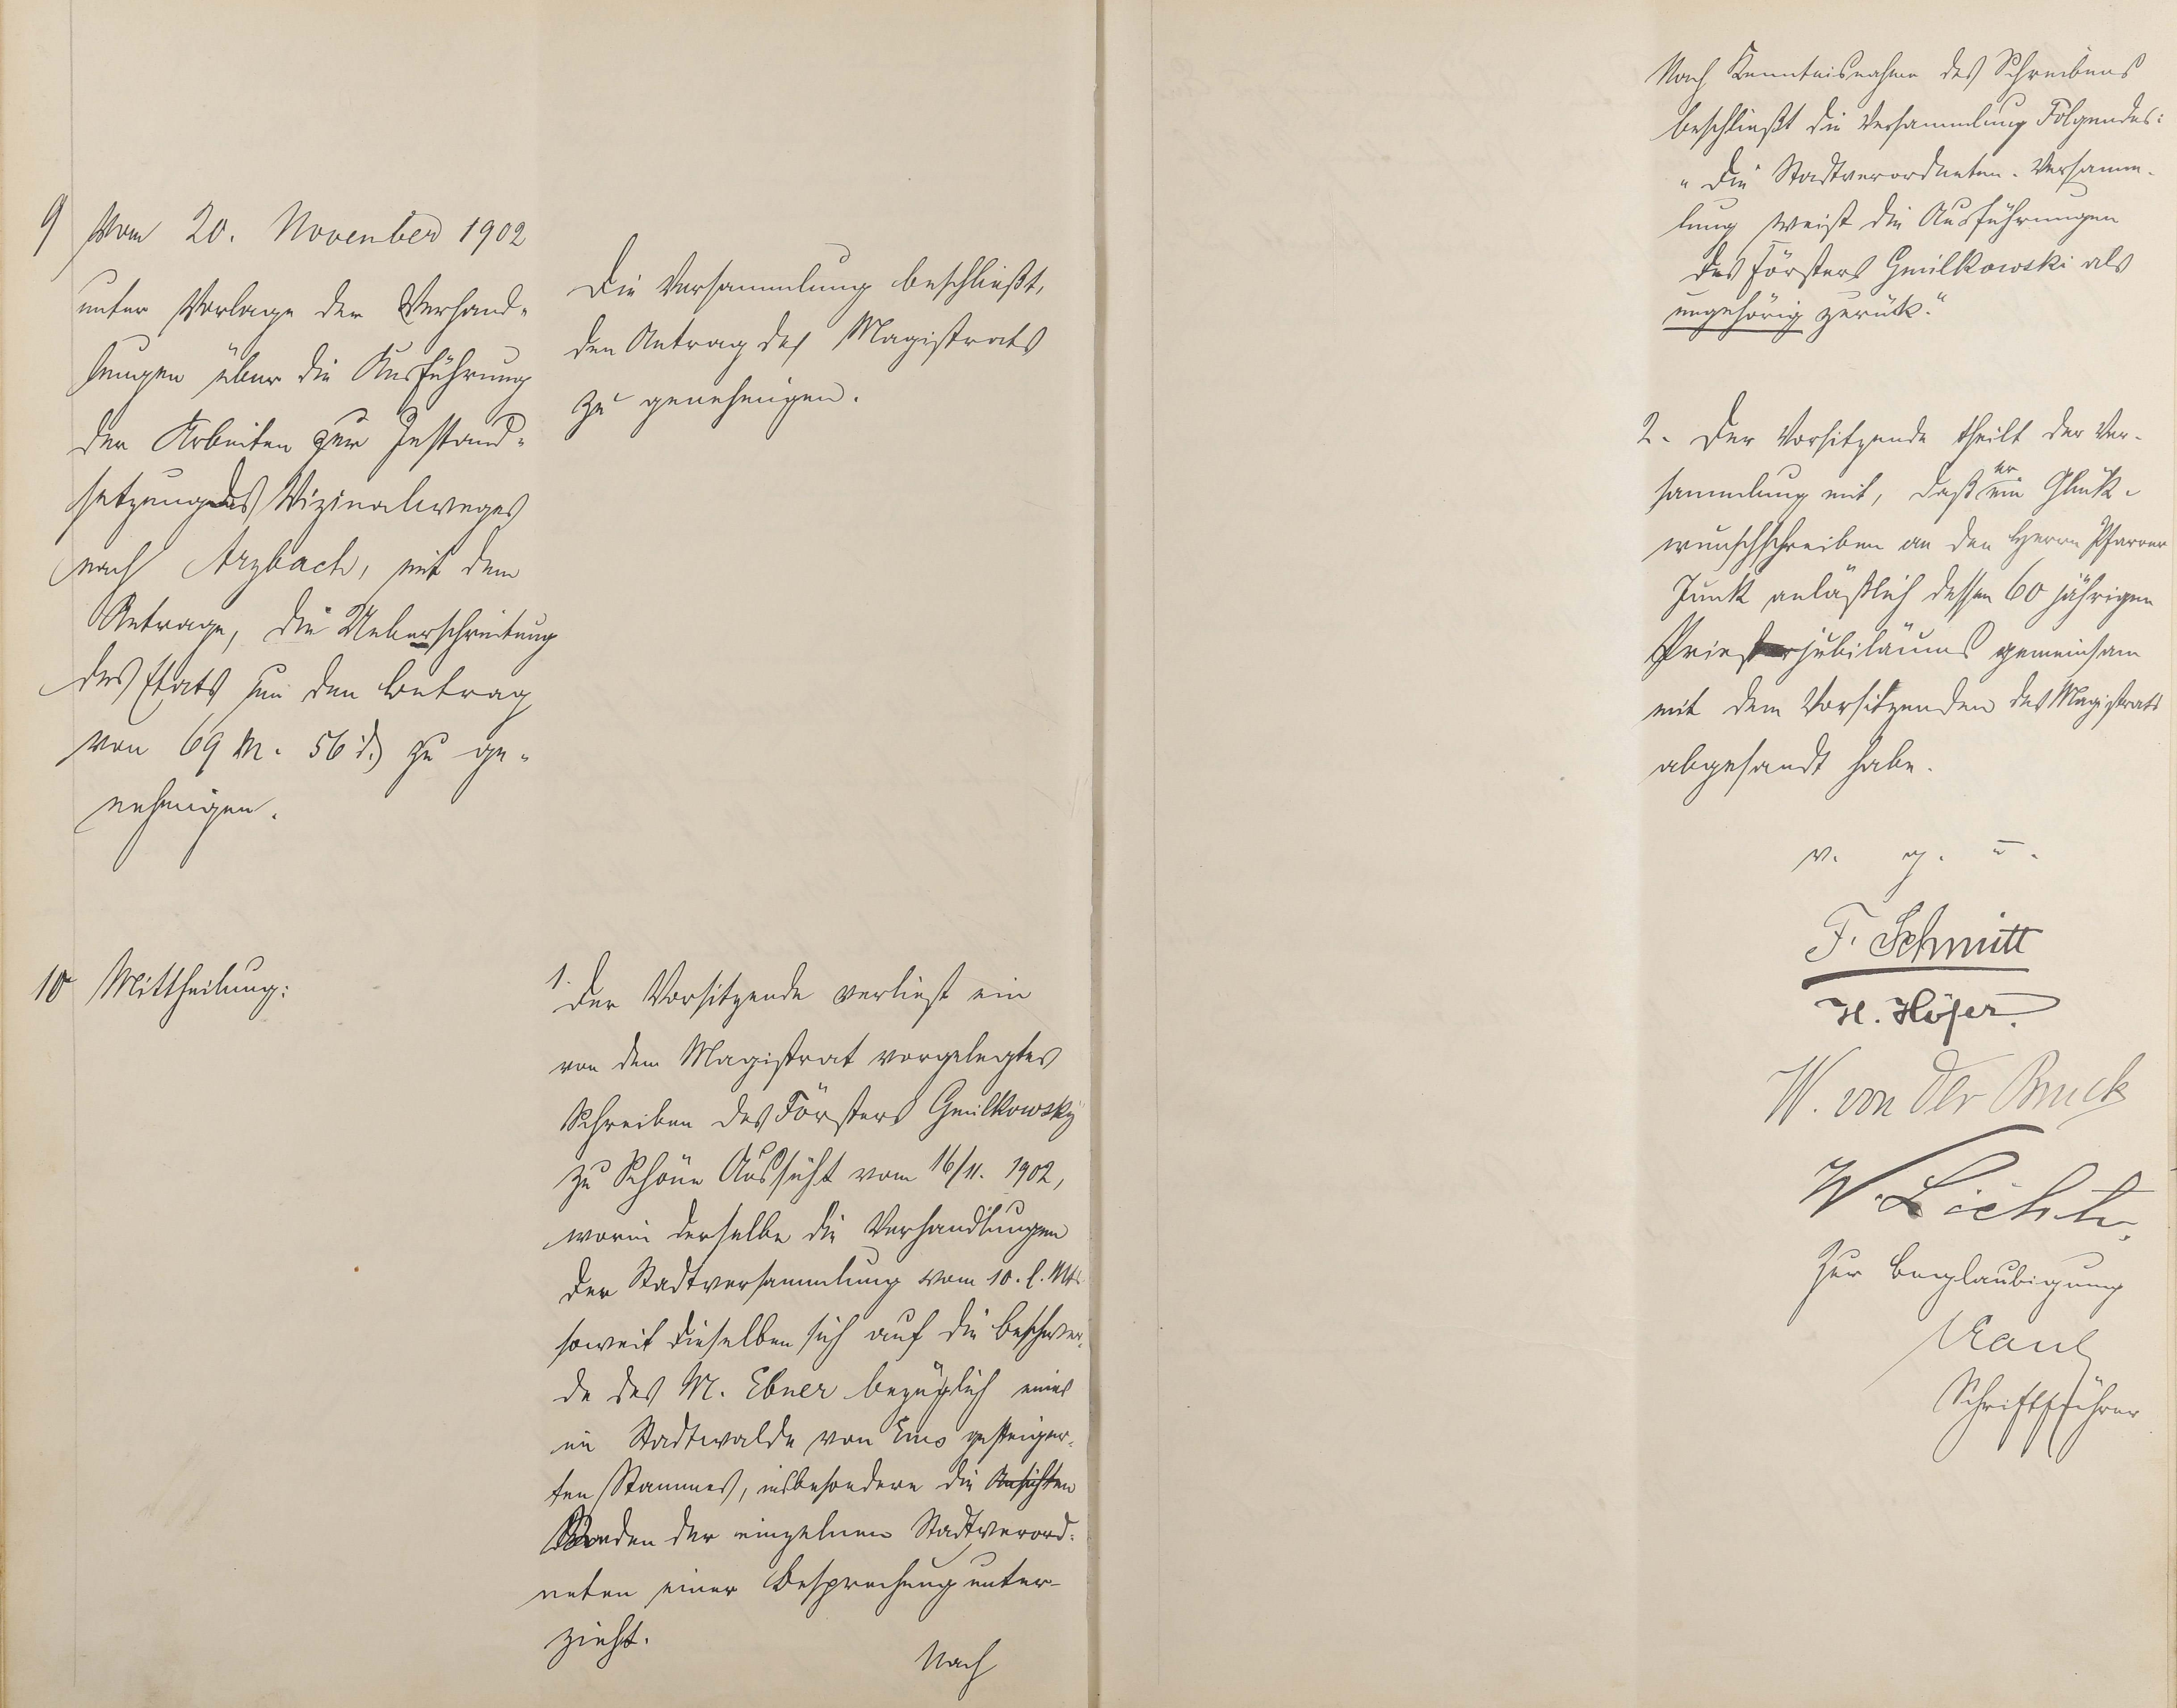 9 Vom 20. November 1902
unter Vorlage der Verhand-
lungen über die Ausführung
der Arbeiten zur Instand-
setzung des Vizinalweges
nach Arzbach, mit dem
Antrage, die Ueberschreitung
des Etats um den Betrag
von 69 M. 56 d. zu ge-
nehmigen.
Die Versammlung beschließt,
den Antrag des Magistrats
zu genehmigen.
10 Mittheilung:
1. Der Vorsitzende verliest ein
von dem Magistrat vorgelegtes
Schreiben des Försters Gmilkowsky
zu Schöne Aussicht vom 16/11. 1902,
worin derselbe die Verhandlungen
der Stadtversammlung vom 10. l. Mts.
soweit dieselben sich auf die Beschwer-
de des M. Ebner bezüglich eines
im Stadtwalde von Ems gesteiger-
ten Stammes, insbesondere die Ansichten
Reden der einzelnen Stadtverord-
neten einer Besprechung unter-
zieht.
Nach
Nach Kenntnisnahme des Schreibens
beschließt die Versammlung Folgendes:
"Die Stadtverordneten-Versamm-
lung weist die Ausführungen
des Försters Gmilkowski als
ungehörig zurück."
2. Der Vorsitzende theilt der Ver-
sammlung mit, daß er ein Glück-
wunschschreiben an den Herrn Pfarrer
Junk anläßlich dessen 60 jährigen
Priesterjubiläums gemeinsam
mit dem Vorsitzenden des Magistrats
abgesandt habe.
v. g. u.
F. Schmitt
H. Höfer.
W. von der Bruck
W. Lichte.
Zur Beglaubigung
Schriftführer